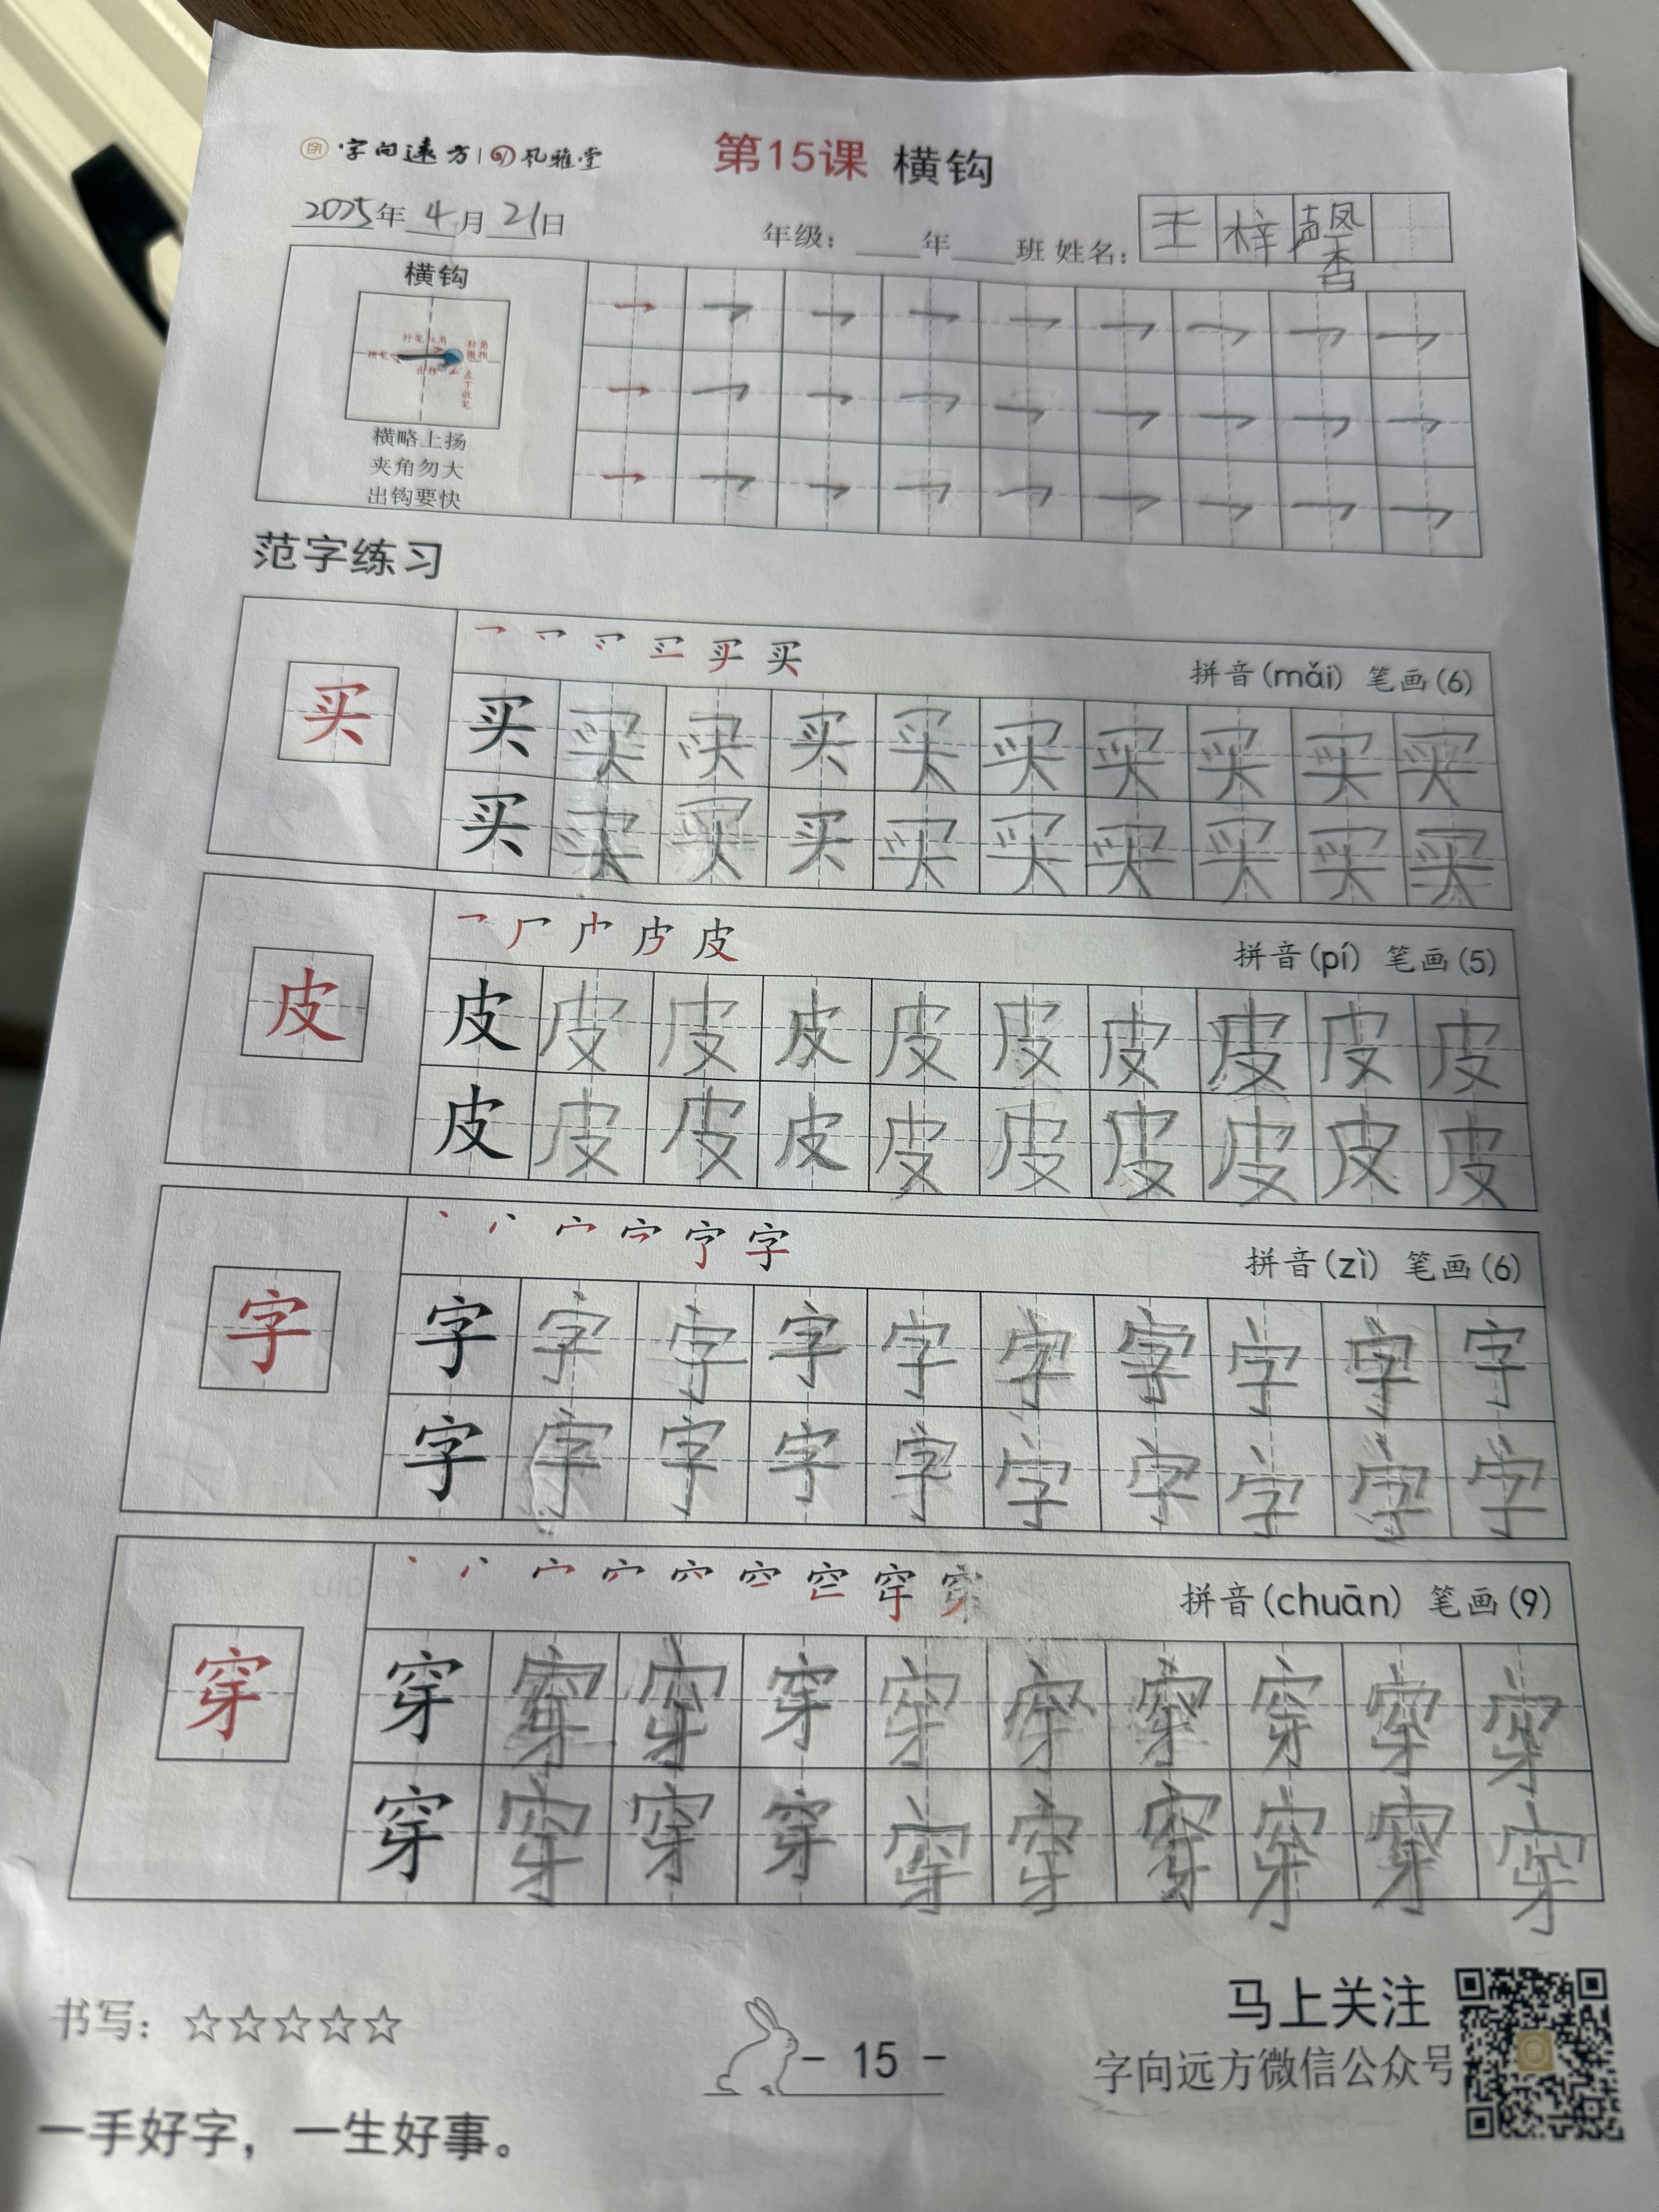 字向远方 风雅堂
第15课 横钩
2025年 4月 21日
年级: 年 班 姓名: 王梓馨
横钩
横略上扬
夹角勿大
出钩要快
范字练习
买
拼音(mǎi) 笔画(6)
买 买 买 买 买 买 买 买 买 买
买 买 买 买 买 买 买 买 买 买
皮
拼音(pí) 笔画(5)
皮 皮 皮 皮 皮 皮 皮 皮 皮 皮
皮 皮 皮 皮 皮 皮 皮 皮 皮 皮
字
拼音(zì) 笔画(6)
字 字 字 字 字 字 字 字 字 字
字 字 字 字 字 字 字 字 字 字
穿
拼音(chuān) 笔画(9)
穿 穿 穿 穿 穿 穿 穿 穿 穿 穿
穿 穿 穿 穿 穿 穿 穿 穿 穿 穿
书写: ☆☆☆☆☆
- 15 -
马上关注
字向远方微信公众号
一手好字，一生好事。